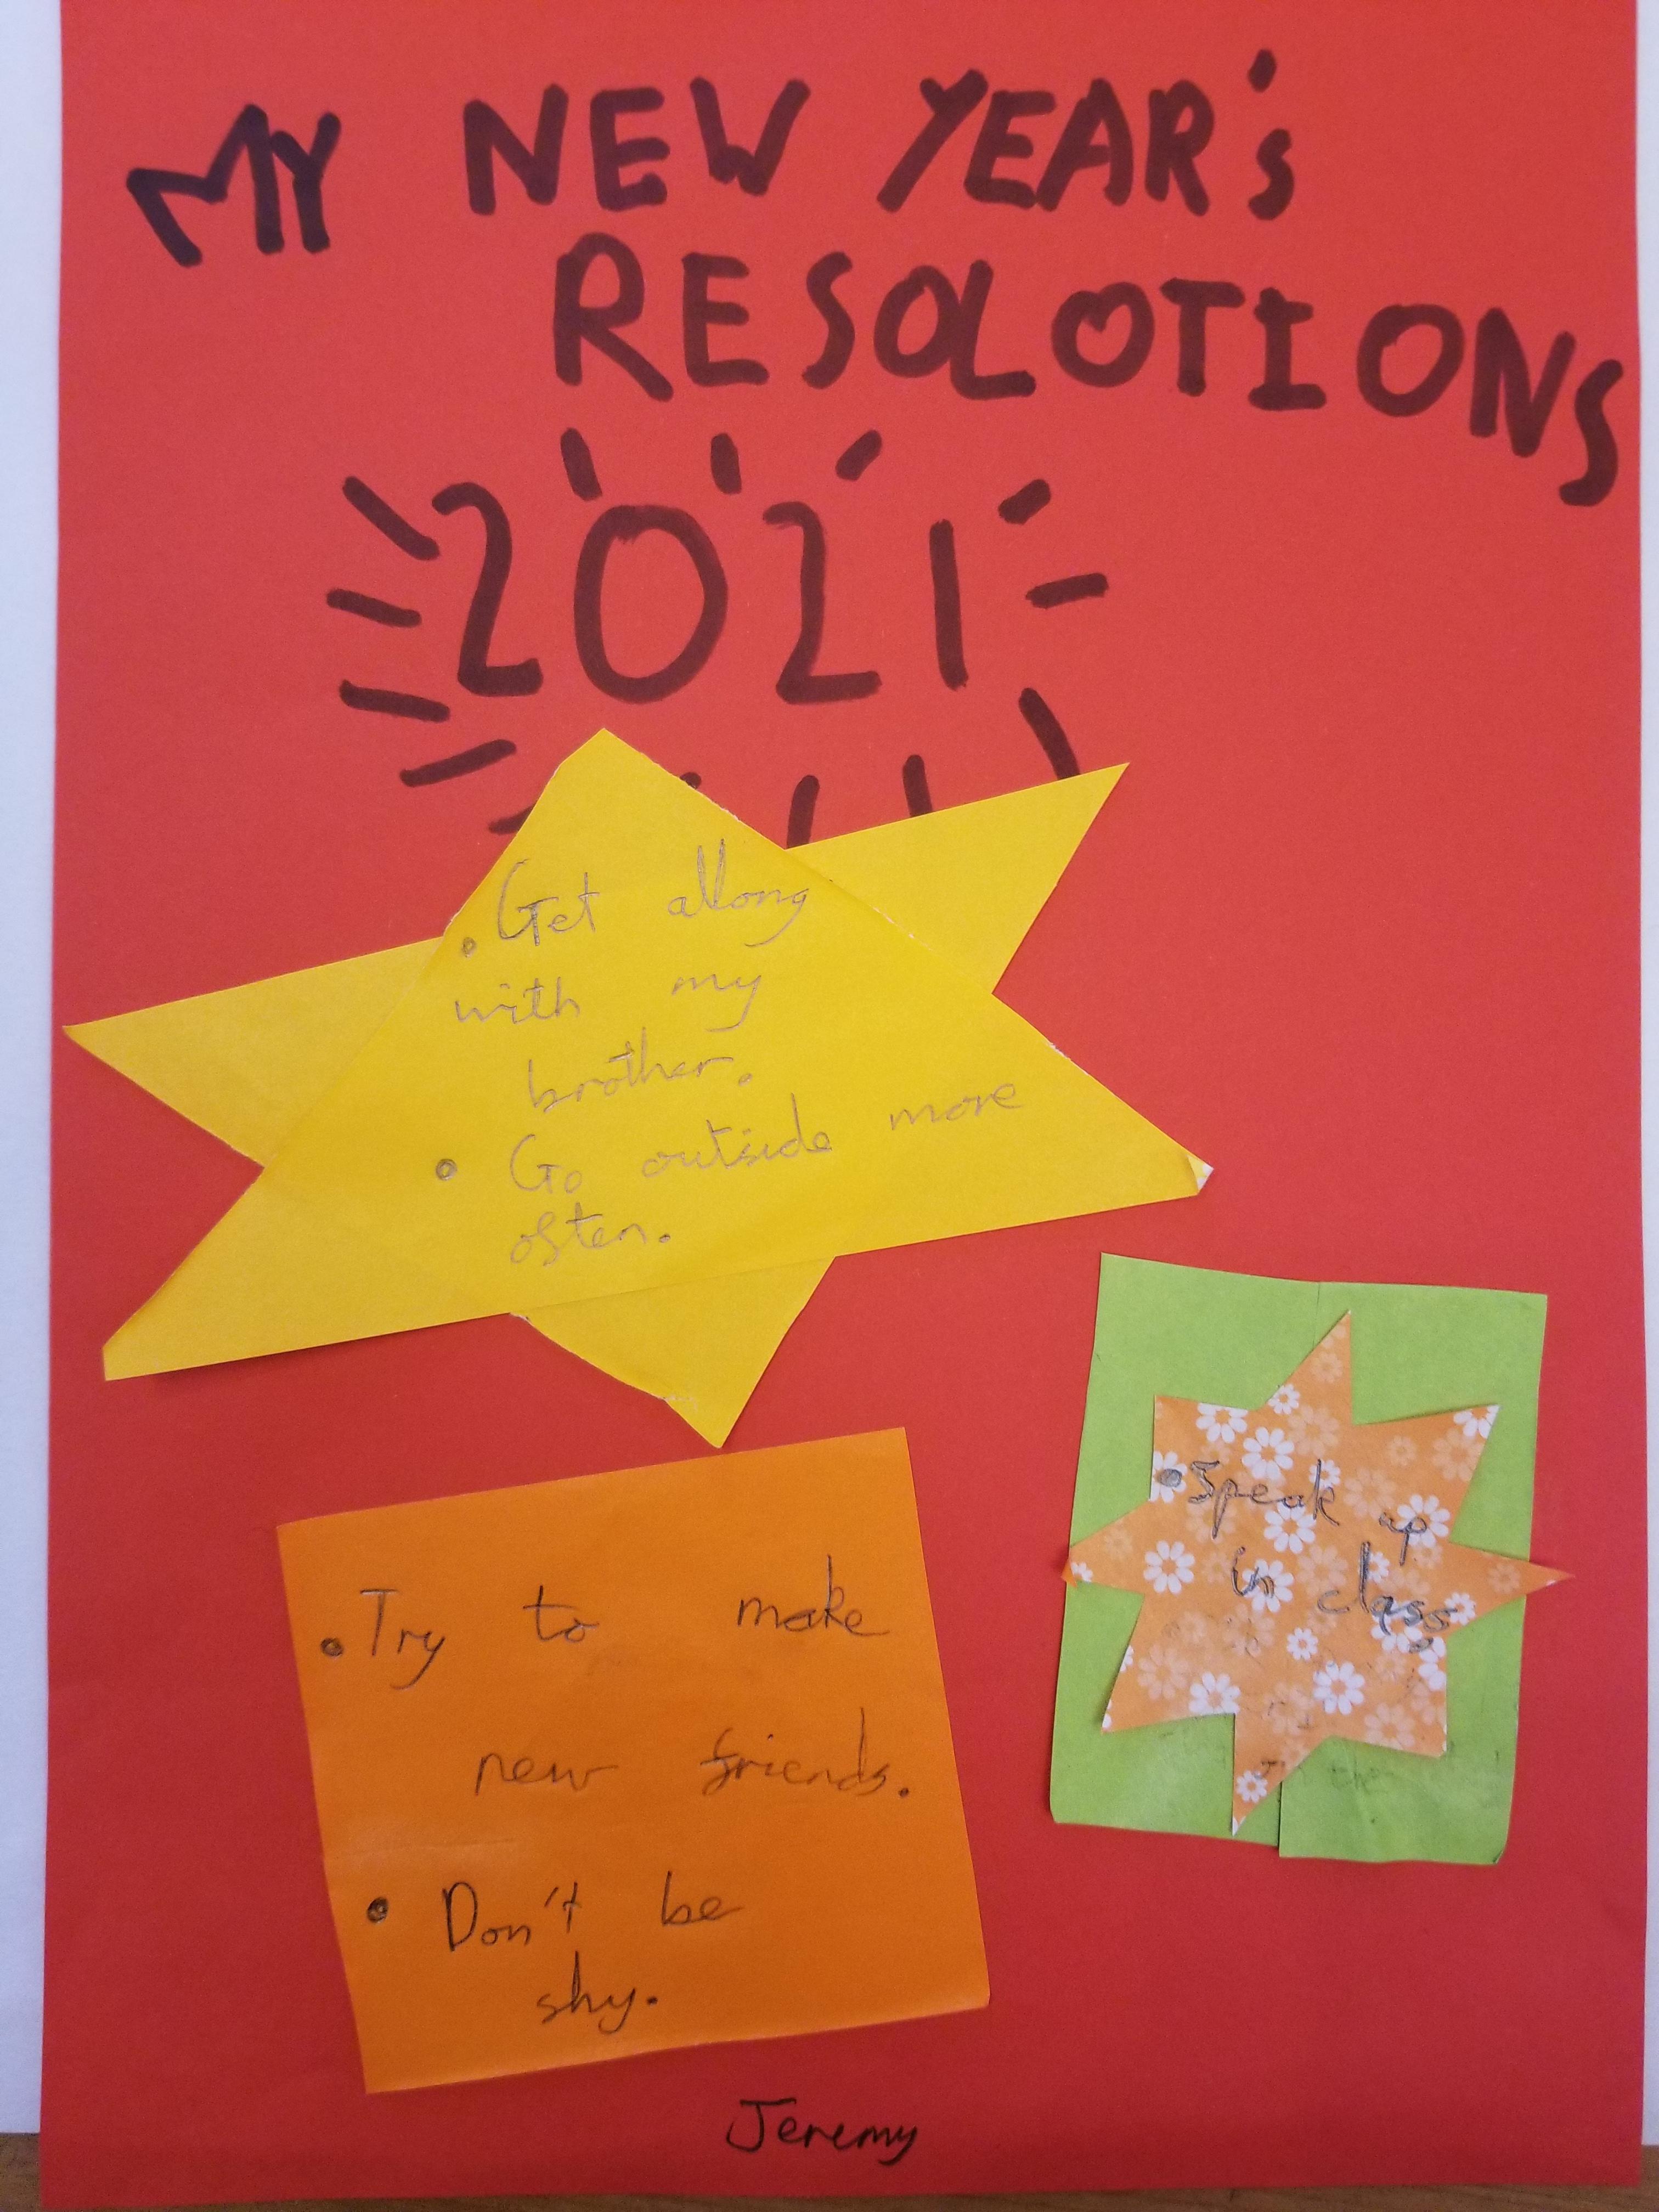 MY NEW YEAR'S
RESOLOTIONS
2021
• Get allong
with my
brother.
• Go outside more
often.
• Speak up
in class.
• Try to make
new friends.
• Don't be
shy.
Jeremy